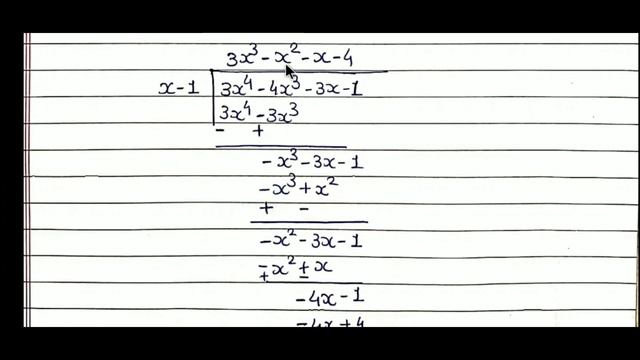 3x³ - x² - x - 4
x - 1 | 3x⁴ - 4x³ - 3x - 1
3x⁴ - 3x³
- +
- x³ - 3x - 1
- x³ + x²
+ -
- x² - 3x - 1
- x² + x
+ -
- 4x - 1
- 4x + 4